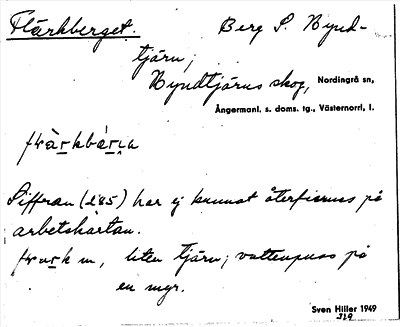 Flärkberget. Berg S. Bynd-
tjärn;
Byndtjärns skog, Nordingrå sn,
Ångermanl. s. doms. tg., Västernorrl, l.
Siffran (285) har ej kunnat återfinnas på
arbetskartan.
m, liten tjärn; vattenpuss på
en myr.
Sven Hiller 1949